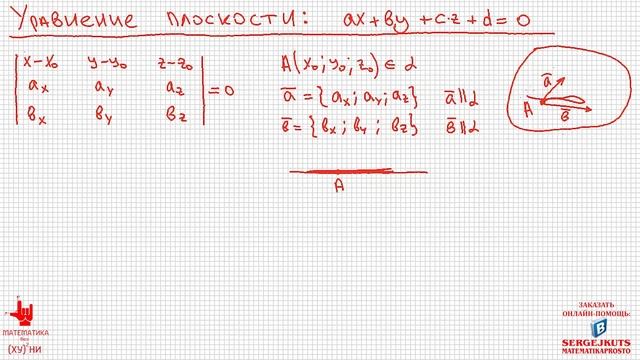 Уравнение плоскости: ax+вy+c·z+d=0
x-x₀ y-y₀ z-z₀
aₓ aᵧ a_z =0
вₓ вᵧ в_z
A(x₀;y₀;z₀)∈α
a̅={aₓ;aᵧ;a_z} a̅∥α
в̅={вₓ;вᵧ;в_z} в̅∥α
a̅
A
в̅
A
МАТЕМАТИКА
без
(ХУ)²НИ
ЗАКАЗАТЬ
ОНЛАЙН-ПОМОЩЬ:
B
SERGEJKUTS
MATEMATIKAPROSTO